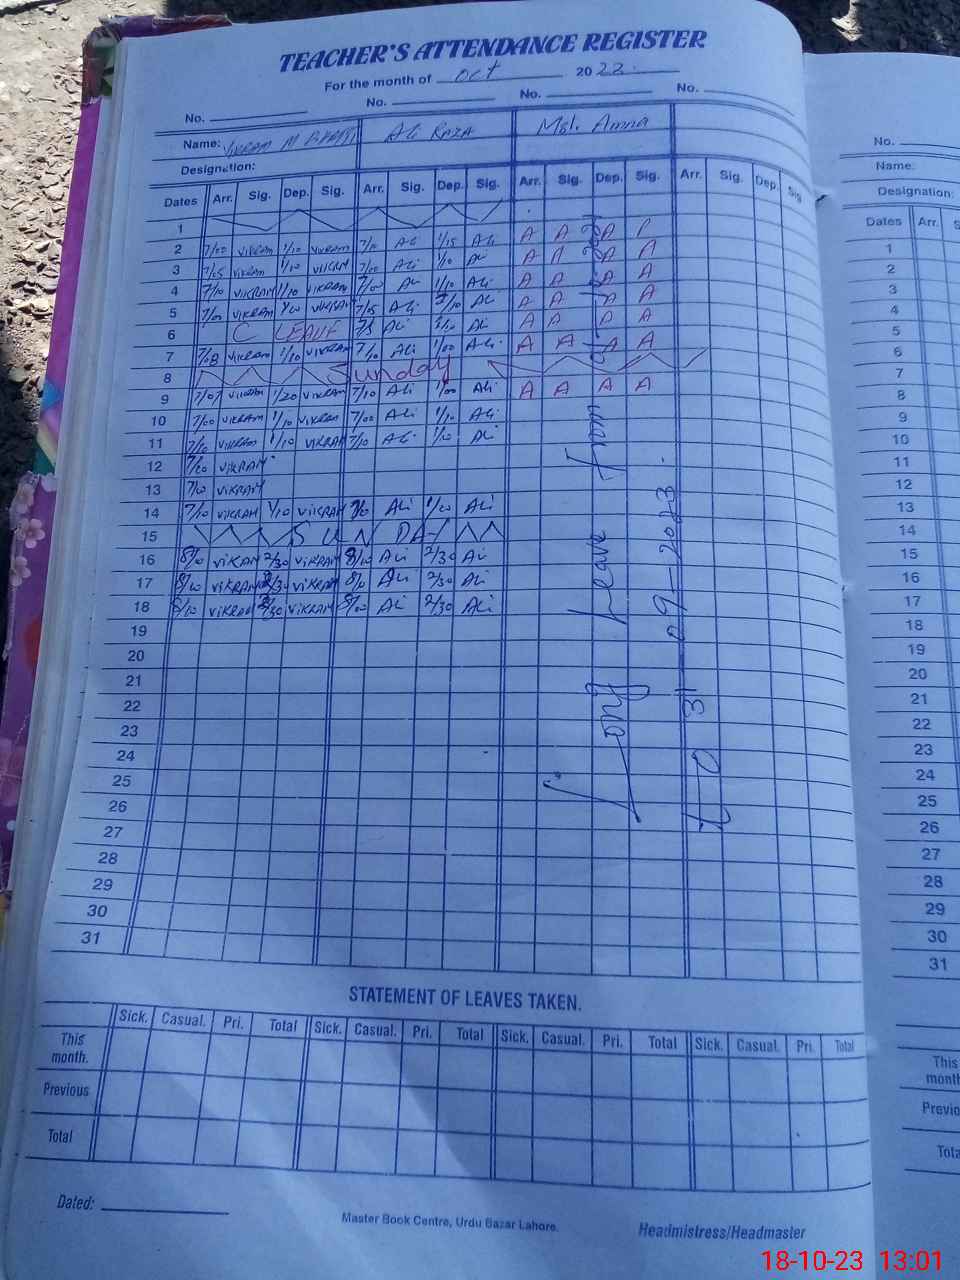 TEACHER'S ATTENDANCE REGISTER
For the month of Oct 2022
No. No. No. No.
Name: VIKRAM M BHATTI Ali RAZA Mst. Amna
Designation:
Dates Arr. Sig. Dep. Sig. Arr. Sig. Dep. Sig. Arr. Sig. Dep. Sig. Arr. Sig. Dep. Sig.
1
2 7/00 VIKRAM 1/10 VIKRAM 7/10 Ali 1/15 Ali A A A P
3 7/05 VIKRAM 1/10 VIKRAM 7/00 Ali 1/10 Ali A A A A
4 7/10 VIKRAM 1/10 VIKRAM 7/00 Ali 1/10 Ali A A A A
5 7/00 VIKRAM VIKRAM 7/15 Ali Ali A A A A
6 C LEAVE Ali Ali A A A A
7 7/08 VIKRAM 1/10 VIKRAM 7/10 Ali 1/00 Ali A A A A
8 Sunday
9 7/07 VIKRAM 1/20 VIKRAM 7/10 Ali 1/00 Ali A A A A
10 7/00 VIKRAM 1/10 VIKRAM 7/00 Ali 1/10 Ali
11 7/10 VIKRAM 1/10 VIKRAM 7/10 Ali 1/10 Ali
12 7/20 VIKRAM
13 7/10 VIKRAM
14 7/10 VIKRAM 1/10 VIKRAM Ali 1/20 Ali
15 SUNDAY
16 8/10 VIKRAM 2/30 VIKRAM 8/10 Ali 2/30 Ali
17 8/10 VIKRAM 2/30 VIKRAM 8/10 Ali 2/30 Ali
18 8/10 VIKRAM 2/30 VIKRAM 8/00 Ali 2/30 Ali
19
20
21
22
23
24
25
26
27
28
29
30
31
Long Leave from
to 31-09-2023
STATEMENT OF LEAVES TAKEN.
Sick. Casual. Pri. Total Sick. Casual. Pri. Total Sick. Casual. Pri. Total Sick. Casual. Pri. Total
This month.
Previous
Total
Dated:
Master Book Centre, Urdu Bazar Lahore.
Headmistress/Headmaster
No.
Name:
Designation:
Dates Arr.
1
2
3
4
5
6
7
8
9
10
11
12
13
14
15
16
17
18
19
20
21
22
23
24
25
26
27
28
29
30
31
This
month
18-10-23 13:01